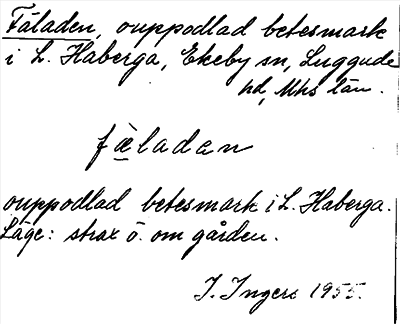 Fäladen, ouppodlad betesmark
i L. Haberga, Ekeby sn, Luggude
hd, Mhs län.
fæladan
ouppodlad betesmark i L. Haberga.
Läge: strax ö. om gården.
I. Ingers 1955.